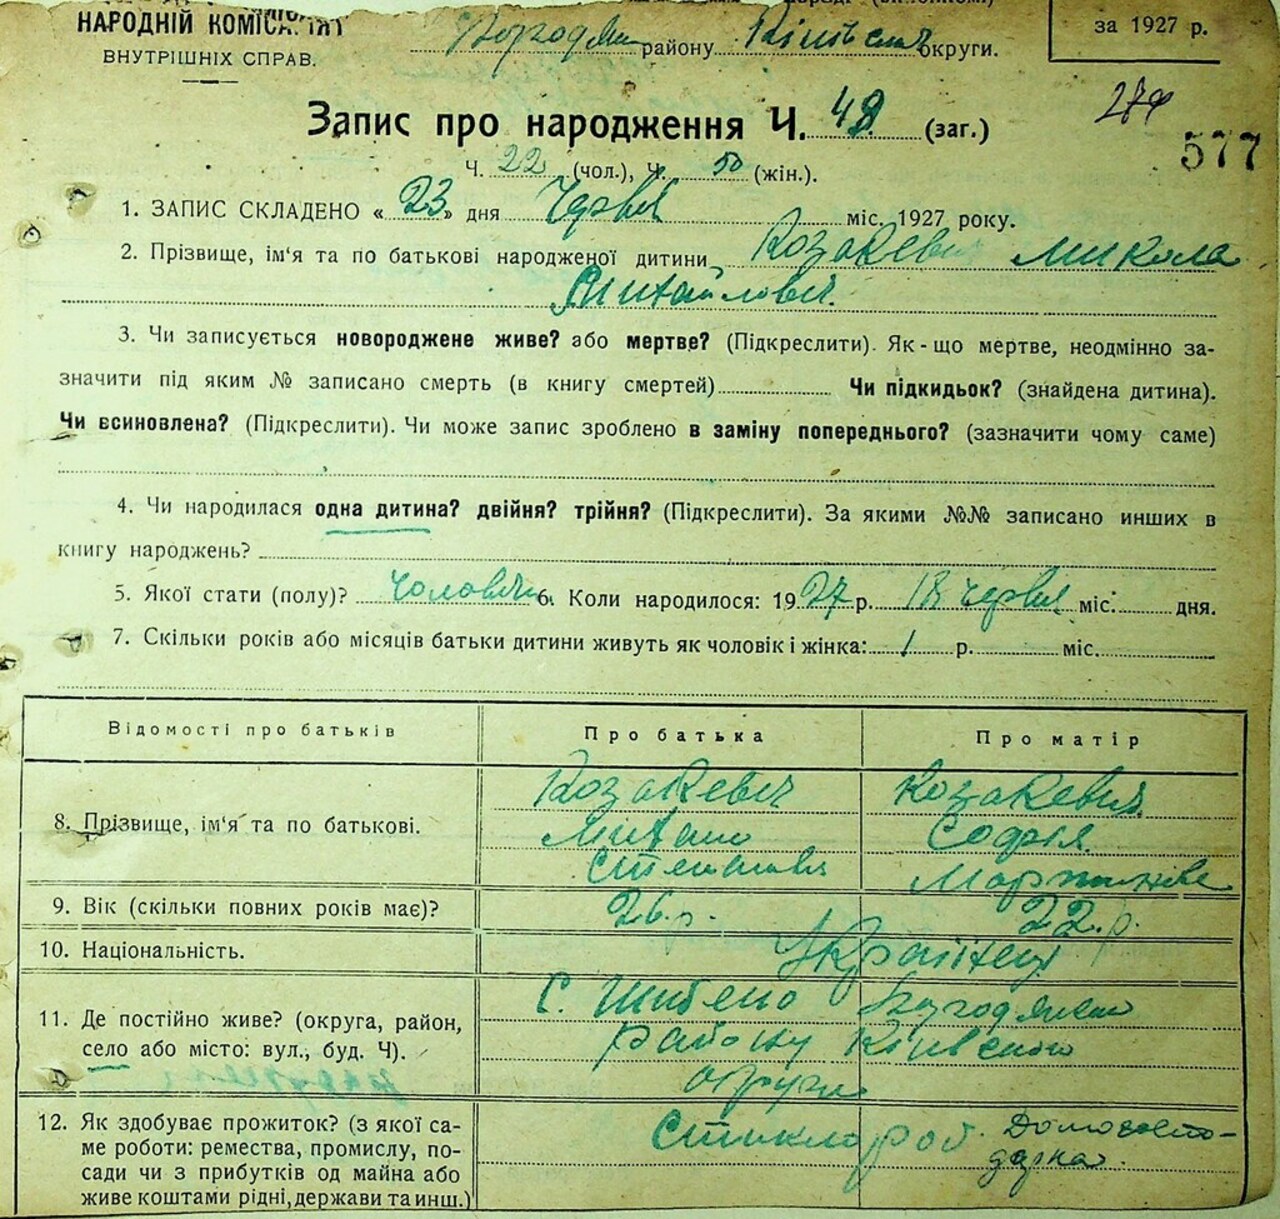 НАРОДНІЙ КОМІСАРІЯТ
ВНУТРІШНІХ СПРАВ.
району Київської округи.
за 1927 р.
274
577
Запис про народження Ч. 48 (заг.)
Ч. 22 (чол.), Ч. 50 (жін.).
1. ЗАПИС СКЛАДЕНО « 23 » дня Червня міс. 1927 року.
2. Прізвище, ім‘я та по батькові народженої дитини Козакевич Микола
Михайлович.
3. Чи записується новороджене живе? або мертве? (Підкреслити). Як-що мертве, неодмінно за-
значити під яким № записано смерть (в книгу смертей) Чи підкидьок? (знайдена дитина).
Чи всиновлена? (Підкреслити). Чи може запис зроблено в заміну попереднього? (зазначити чому саме)
4. Чи народилася одна дитина? двійня? трійня? (Підкреслити). За якими №№ записано инших в
книгу народжень?
5. Якої стати (полу)? Чоловіч. 6. Коли народилося: 1927 р. 18 Червня міс. дня.
7. Скільки років або місяців батьки дитини живуть як чоловік і жінка: 1 р. міс.
Відомості про батьків Про батька Про матір
8. Прізвище, ім‘я та по батькові.
Козакевич Козакевич
Михайло Софія
9. Вік (скільки повних років має)? 26 р. 22. р.
10. Національність. Українці
11. Де постійно живе? (округа, район,
село або місто: вул., буд. Ч).
С. Шибено Бородянсько
району Київського
округи
12. Як здобуває прожиток? (з якої са-
ме роботи: ремества, промислу, по-
сади чи з прибутків од майна або
живе коштами рідні, держави та инш.)
Стеклороб. Домогоспо-
дарка.